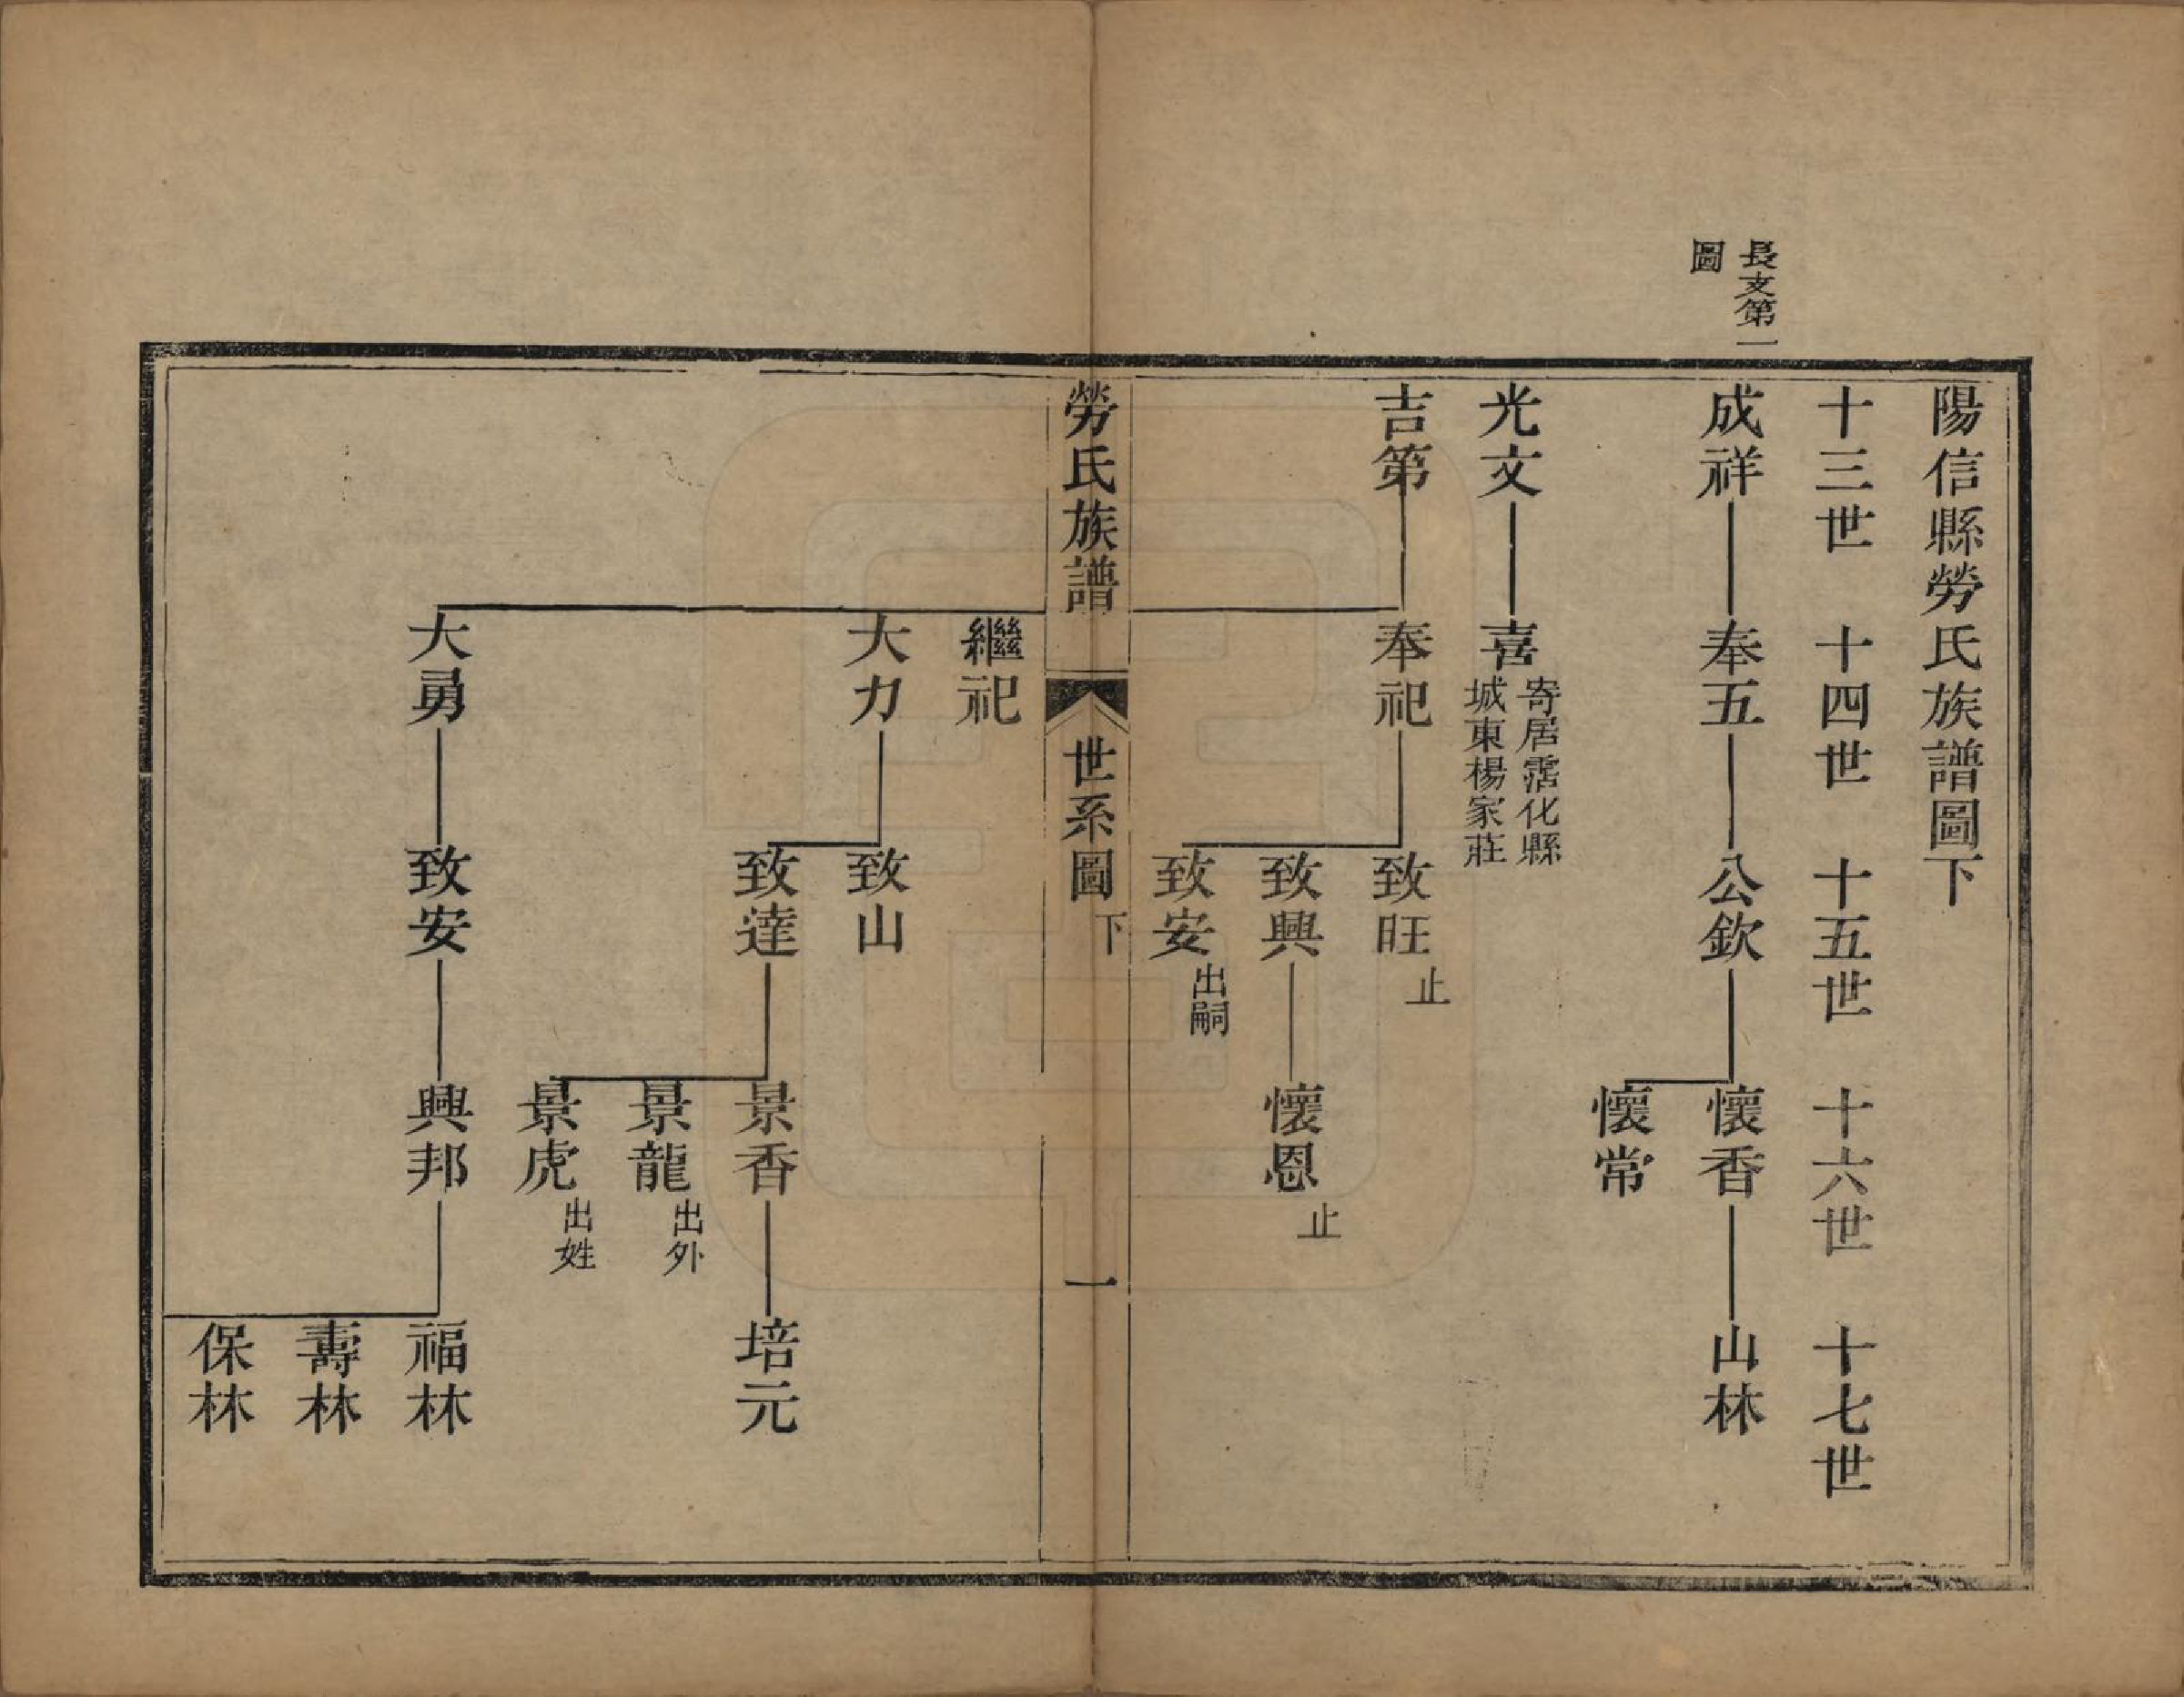 長支第一
圖
陽信縣勞氏族譜圖下
十三世 十四世 十五世 十六世 十七世
成祥 奉五 公欽 懷香 山林
懷常
光文 喜 寄居霑化縣
城東楊家莊
吉第 奉祀 致旺 止
致興 懷恩 止
致安 出嗣
勞氏族譜 世系圖 下 一
繼祀
大力 致山
致達 景香 培元
景龍 出外
景虎 出姓
大勇 致安 興邦 福林
壽林
保林